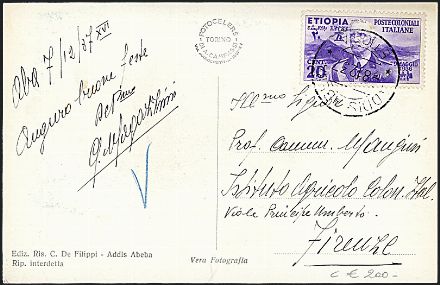 FOTOCELERE
TORINO
ETIOPIA
POSTE COLONIALI
ITALIANE
9 MAGGIO
1936
CENT.
20
Aba 7/12/37 XVI
Auguro buone feste
Ill mo Signor
Prof. Comm. Mangini
Istituto Agricolo Colon. Ital.
Viale Principe Umberto.
Firenze
Ediz. Ris. C. De Filippi - Addis Abeba
Rip. interdetta
Vera Fotografia
c € 200-